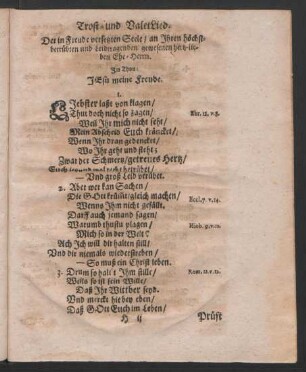 Trost- und ValetLied.
Der in Freude versetzten Seele/ an Ihren höchst-
betrübten und Leidtragenden gewesenen hertz-lie-
ben Ehe-Herrn.
Im Thon:
JEsu meine Freude.
1.
LIebster laßt von klagen/
Thut doch nicht so zagen/
Sir. 22. v. 8.
Weil Ihr mich nicht seht/
Mein Abscheid Euch kräncket/
Wenn Ihr dran gedencket/
Wo Ihr geht und steht;
Zwar der Schmertz/ getreues Hertz/
Euch
recht betrübet/
Und groß Leid verübet.
2. Aber wer kan Sachen/
Die GOtt krümt/ gleich machen/
Eccl. 7. v. 14.
Wenns Ihm nicht gefällt.
Darff auch jemand sagen/
Warumb thustu plagen/
Hiob. 9. v. 12.
Mich so in der Welt?
Ach Ich will dir halten still/
Und dir niemals wiederstreben/
So muß ein Christ leben.
3. Drum so halt't Ihm stille/
Weils so ist sein Wille/
Daß Ihr Wittber seyd.
Und merckt hiebey eben/
Daß GOtt Euch im Leben/
H ij
Prüft